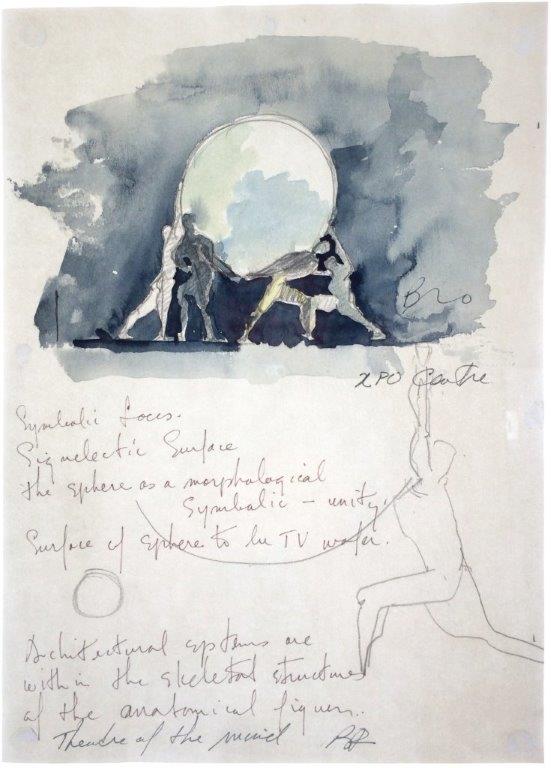 Bro
XPO Centre
Symbolic focus.
Signalectic Surface
the sphere as a morphological
Symbolic – unity.
Surface of sphere to be TV water.
Architectural systems are
within the skeletal structures
of the anatomical figures.
Theatre of the mind